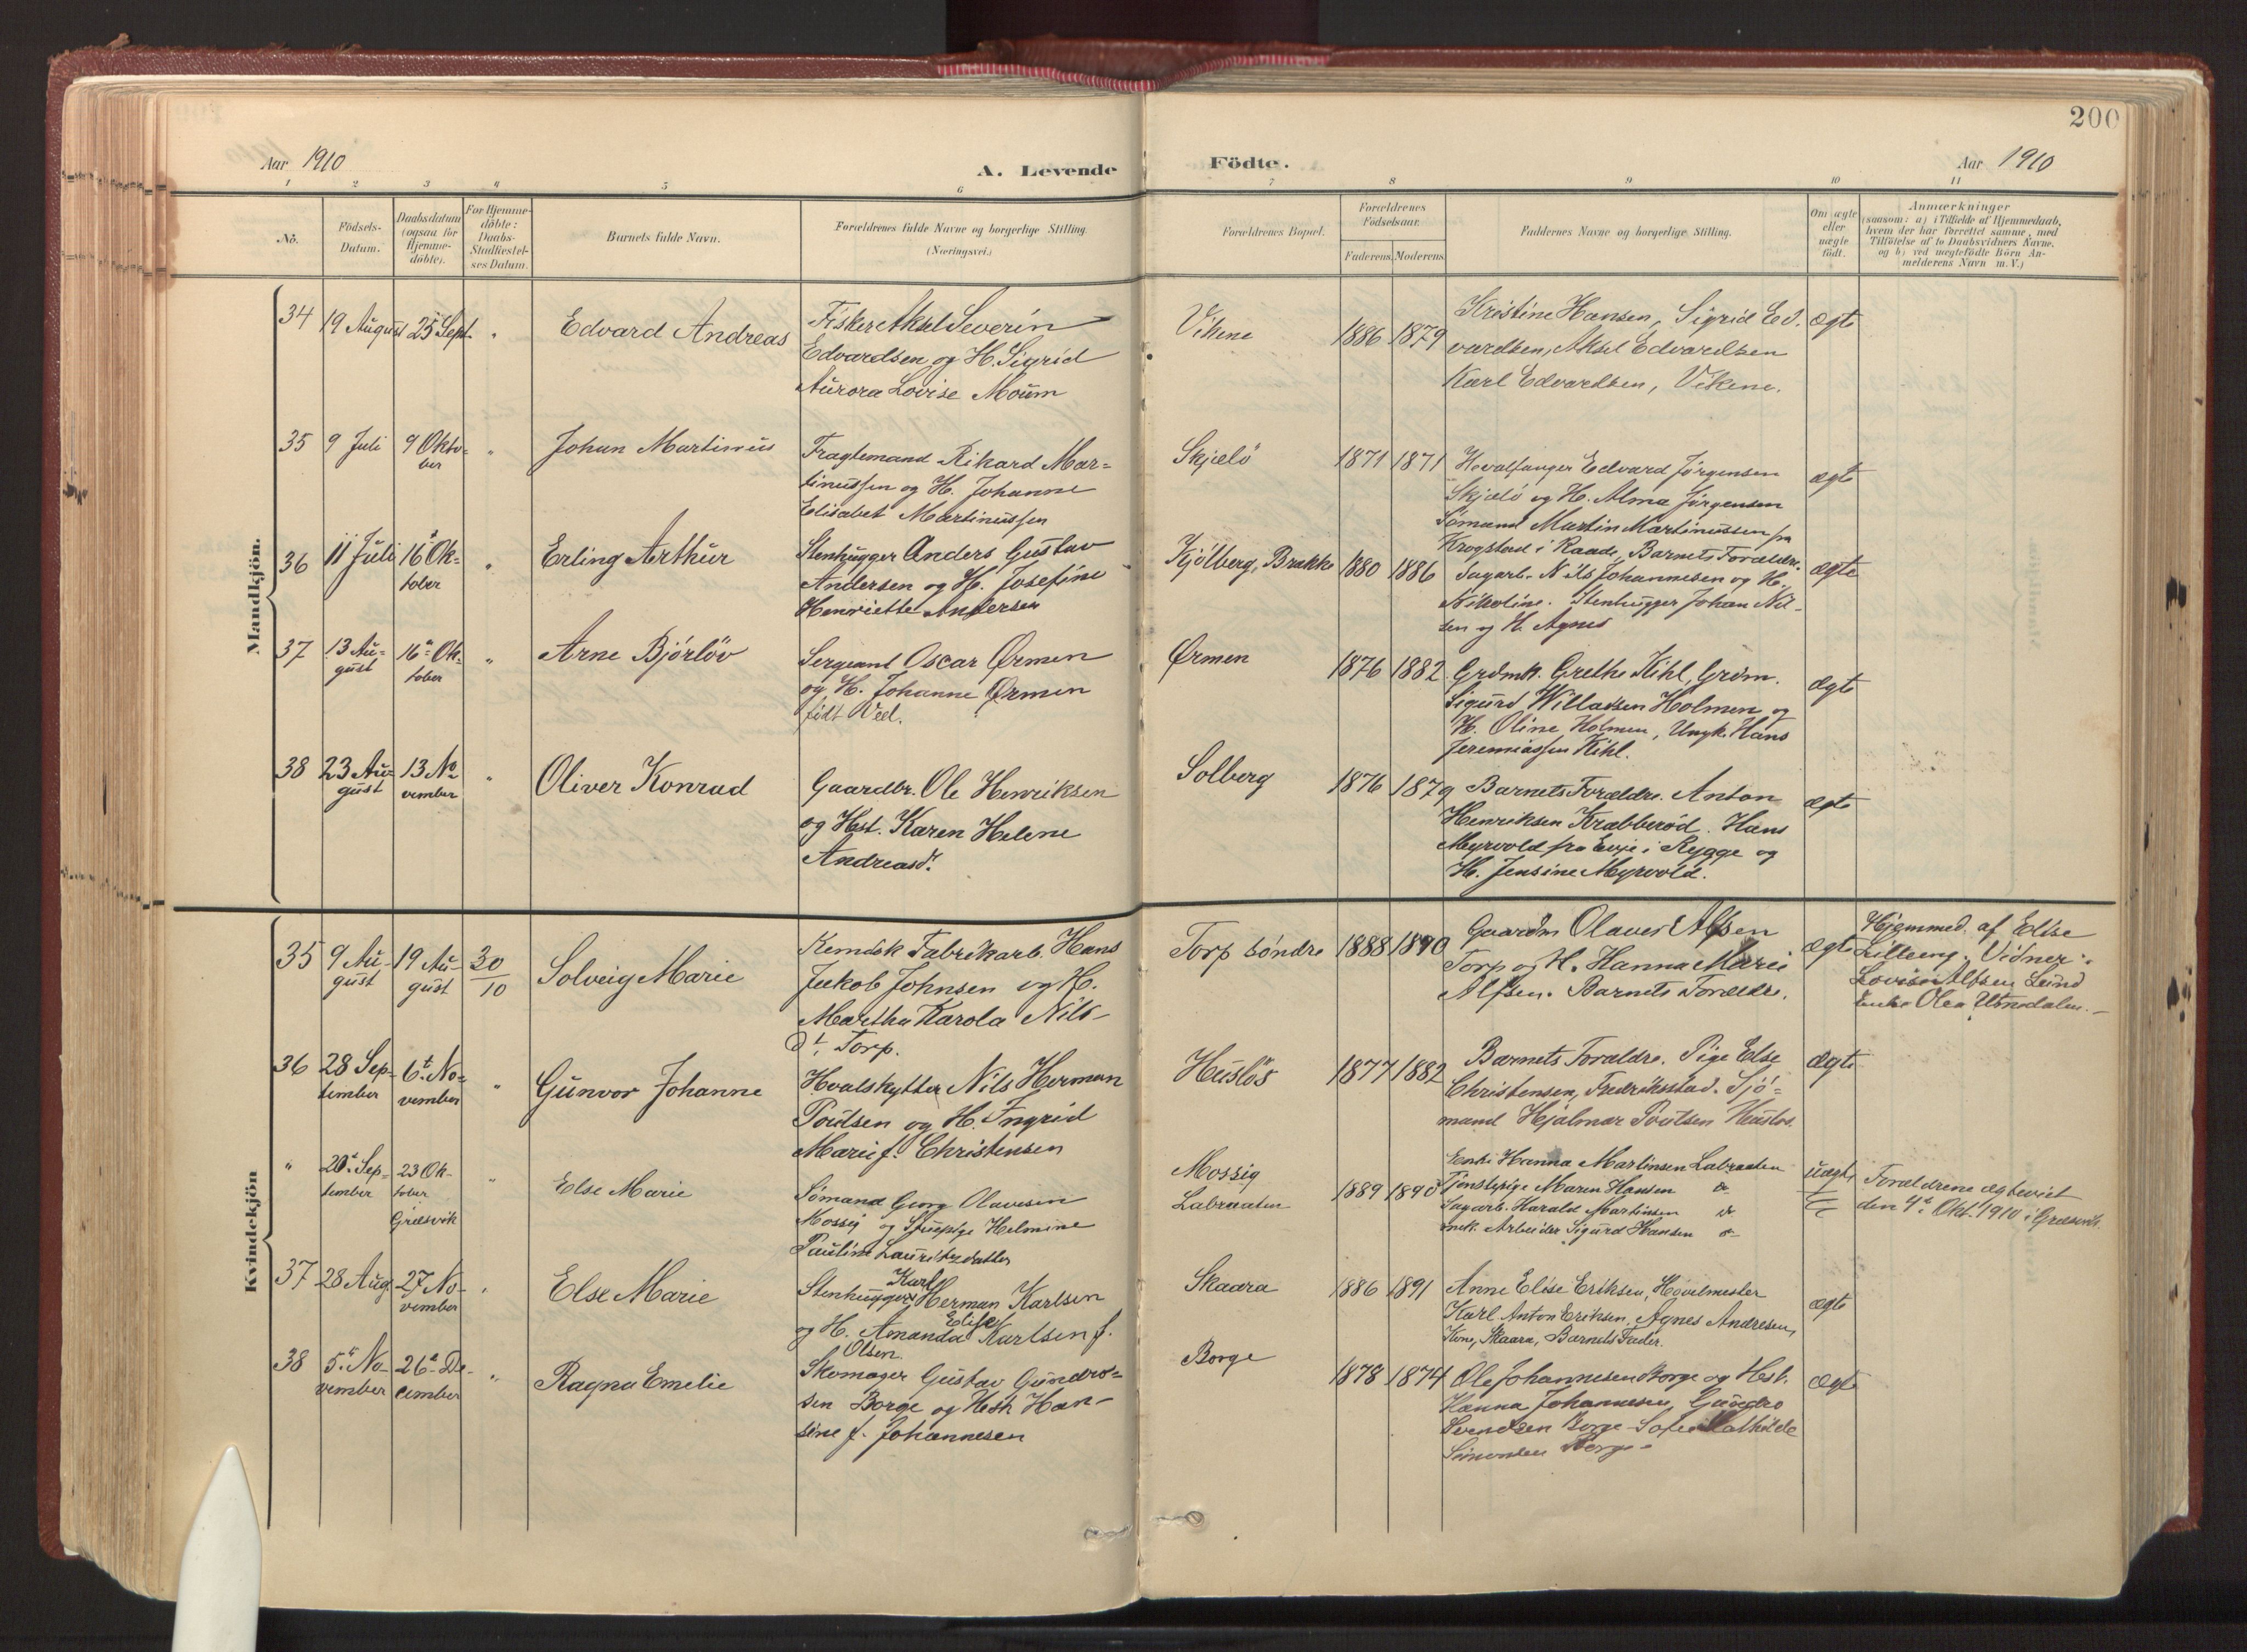 200
Aar 1910
A. Levende Födte.
Aar 1910
1 2 3 4 5 6 7 8 9 10 11
No.
Födsels-Datum.
Daabsdatum (ogsaa for Hjemme-döbte).
For Hjemme-döbte: Daabs-Stadfæstel-ses Datum.
Barnets fulde Navn.
Forældrenes fulde Navne og borgerlige Stilling.
(Næringsvei.)
Forældrenes Bopæl.
Forældrenes Födselsaar.
Faderens. Moderens.
Faddernes Navne og borgerlige Stilling.
Om ægte eller uægte födt.
Anmærkninger
(saasom: a) i Tilfælde af Hjemmedaab,
hvem der har forrettet samme, med
Tilföielse af to Daabsvidners Navne,
og b) ved uægtefödte Börn An-
melderens Navn m. V.)
Mandkjön.
34 19 August 25 Sept. " Edvard Andreas
Fisker Aksel Severin
Edvardsen og H. Sigrid
Aurora Lovise Moum
Vikene 1886 1879
Kristine Hansen, Sigrid Ed-
vardsen, Aksel Edvardsen
Karl Edvardsen, Vikene.
ægte
35 9 Juli 9 Okto-
ber
" Johan Martinus
Fragtemand Rikard Mar-
tinussen og H. Johanne
Elisabet Martinussen
Skjælö 1871 1871
Hvalfanger Edvard Jörgensen
Skjælö og H. Alma Jörgensen
Sömand Martin Martinussen fra
Krogstad i Raade, Barnets Forældre.
ægte
36 11 Juli 16 Ok-
tober
" Erling Arthur
Stenhugger Anders Gustav
Andersen og H. Josefine
Henriette Andersen
Kjölberg, Brække 1880 1886
Sagarb. Nils Johannesen og H.
Nikoline. Stenhugger Johan Nil-
sen og H. Agnes
ægte
37 13 Au-
gust
16 Ok-
tober
" Arne Bjórlöv
Sergeant Oscar Ørmen
og H. Johanne Ørmen
födt Veel.
Ørmen 1876 1882
Grdmk. Grethe Kihl, Grdm.
Sigurd Willadsen Holmen og
H. Oline Holmen, Ungk. Hans
Jeremiassen Kihl.
ægte
38 23 Au-
gust
13 No
vember
" Oliver Konrad
Gaardbr. Ole Henriksen
og Hst. Karen Helene
Andreasdt.
Solberg 1876 1879
Barnets Forældre. Anton
Henriksen Kråbberöd. Hans
Myrvold fra Evje i Rygge og
H. Jensine Myrvold.
ægte
Kvindekjön
35 9 Au-
gust
19 Au-
gust
30
10
Solveig Marie
Kemisk Fabrikarb. Hans
Jakob Johnsen og H.
Martha Karola Nils-
dt. Torp.
Torp söndre 1888 1890
Gaardm Olaves Alfsen
Torp og H. Hanna Marie
Alfsen. Barnets Forældre.
ægte
Hjemmed. af Else
Lilleeng. Vidner:
Lovise Alfsen Lund
Enke Olea
36 28 Sep-
tember
6t. No-
vember
" Gunvor Johanne
Hvalskytter Nils Herman
Poulsen og H. Ingrid
Marie f. Christensen
Huslös 1877 1882
Barnets Forældre. Pige Else
Christensen, Fredriksstad. Sjö-
mand Hjalmar Poulsen Huslös.
ægte
" 20 Sep-
tember
23 Ok-
tober
Græsvik
" Else Marie
Sömand Georg Olavesen
Mossig og Helmine
Pauline Lauritzdatter
Mossig
Labraaten
1889 1890
Enke Hanna Martinsen Labraaten
Tjenstepige Maren Hansen do
Sagarb. Harald Martinsen do
Arbeider Sigurd Hansen do
uægte
Forældrene ægteviet
den 4de Okt. 1910 i Græsvik
37 28 Aug. 27 No-
vember
" Else Marie
Stenhugger Karl Herman Karlsen
og H. Amanda Elise Karlsen f.
Olsen.
Skaara 1886 1891
Anne Elise Eriksen, Hövelmester
Karl Anton Eriksen, Agnes Andresen,
Kone, Skaara, Barnets Fader.
ægte
38 5te No-
vember
26de De-
cember
" Ragna Emelie
Skomager Gustav Gundro-
sen Borge og Hst. Han-
sine f. Johannesen
Borge 1878 1874
Ole Johannesen Borge og Hst.
Hanna Johannesen, Gundro
Svendsen Borge Sofie Mathilde
Simonsen Borge
ægte